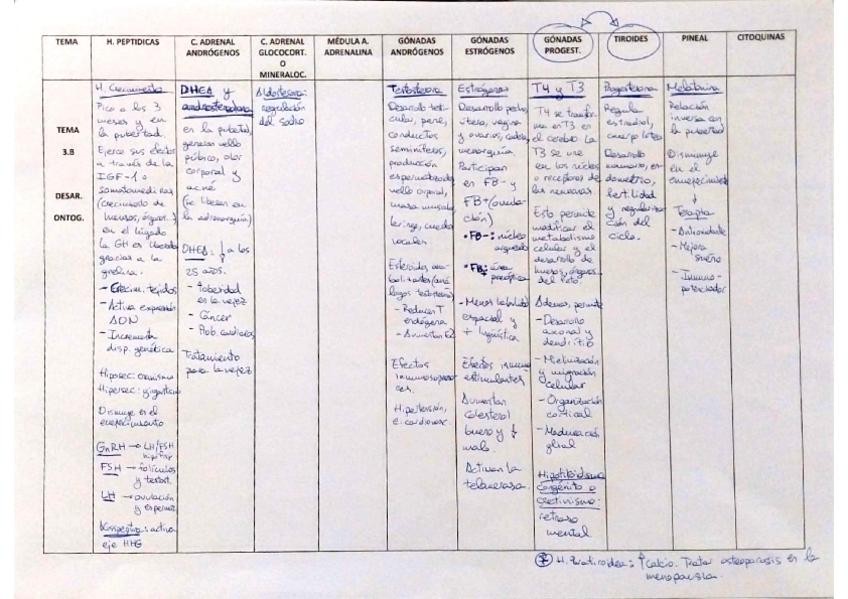 TEMA
H. PEPTIDICAS
C. ADRENAL
ANDRÓGENOS
C. ADRENAL
GLOCOCORT.
O
MINERALOC.
MÉDULA A.
ADRENALINA
GÓNADAS
ANDRÓGENOS
GÓNADAS
ESTRÓGENOS
GÓNADAS
PROGEST.
TIROIDES
PINEAL
CITOQUINAS
TEMA
3.B
DESAR.
ONTOG.
H. Crecimiento
Pico a los 3
meses y en
la pubertad.
Ejerce sus efectos
a través de la
IGF-1 o
somatomedinas
(crecimiento de
huesos, órganos..)
en el hígado
la GH es liberada
gracias a la
grelina.
- Crecim. tejidos
- Activa expresión
ADN
- Incrementa
disp. genética
Hiposec: enanismo
Hipersec: gigantismo
Disminuye en el
envejecimiento
GnRH → LH/FSH
FSH → folículos
y testost.
LH → ovulación
y espermat.
Kisspeptina: activa
eje HHG
DHEA y
androstendiona
en la pubertad,
generan vello
púbico, olor
corporal y
acné
(se liberan en
la adrenarquia)
DHEA: ↓ a los
25 años.
- Obesidad
en la vejez
- Cáncer
- Prob. cardíacos
Tratamiento
para la vejez
Aldosterona:
regulación
del sodio
Testosterona
Desarrollo testi-
cular, pene,
conductos
seminíferos,
producción
espermatozoides
vello corporal,
masa muscular
laringe, cuerdas
vocales.
Esteroides ana-
bolizantes (aná-
logos testosterona)
- Reducen T
endógena
- Aumentan E2
Efectos
inmunosupreso-
res.
Hipertensión,
e. cardiovasc.
Estrógenos
Desarrollo pecho,
útero, vagina
y ovarios, cadera,
menarquía.
Participan
en FB- y
FB+ (ovula-
ción)
• FB-: núcleo
arqueado
• FB+: área
preóptica
- Menos habilidad
espacial y
+ lingüística
Efectos inmuno
estimulantes
Aumentan
colesterol
bueno y ↓
malo.
Activan la
telomerasa.
T4 y T3
T4 se transfor-
ma en T3 en
el cerebro. La
T3 se une
en los núcleos
a receptores de
las neuronas.
Esto permite
modificar el
metabolismo
celular y el
desarrollo de
huesos, órganos
del feto.
Además, permite
- Desarrollo
axonal y
dendrítico
- Mielinización
y migración
celular
- Organización
cortical
- Maduración
glial
Hipotiroidismo
congénito o
cretinismo:
retraso
mental
Progesterona
Regula
estradiol,
cuerpo lúteo
Desarrollo
mamario, en-
dometrio,
fertilidad
y regulari-
ción del
ciclo.
Melatonina
Relación
inversa con
la pubertad
Disminuye
en el
envejecimiento
↓
Terapia
- Antioxidante
- Mejora
sueño
- Inmuno-
potenciador
H. Paratiroidea: ↑ Calcio. Tratar osteoporosis en la
menopausia.